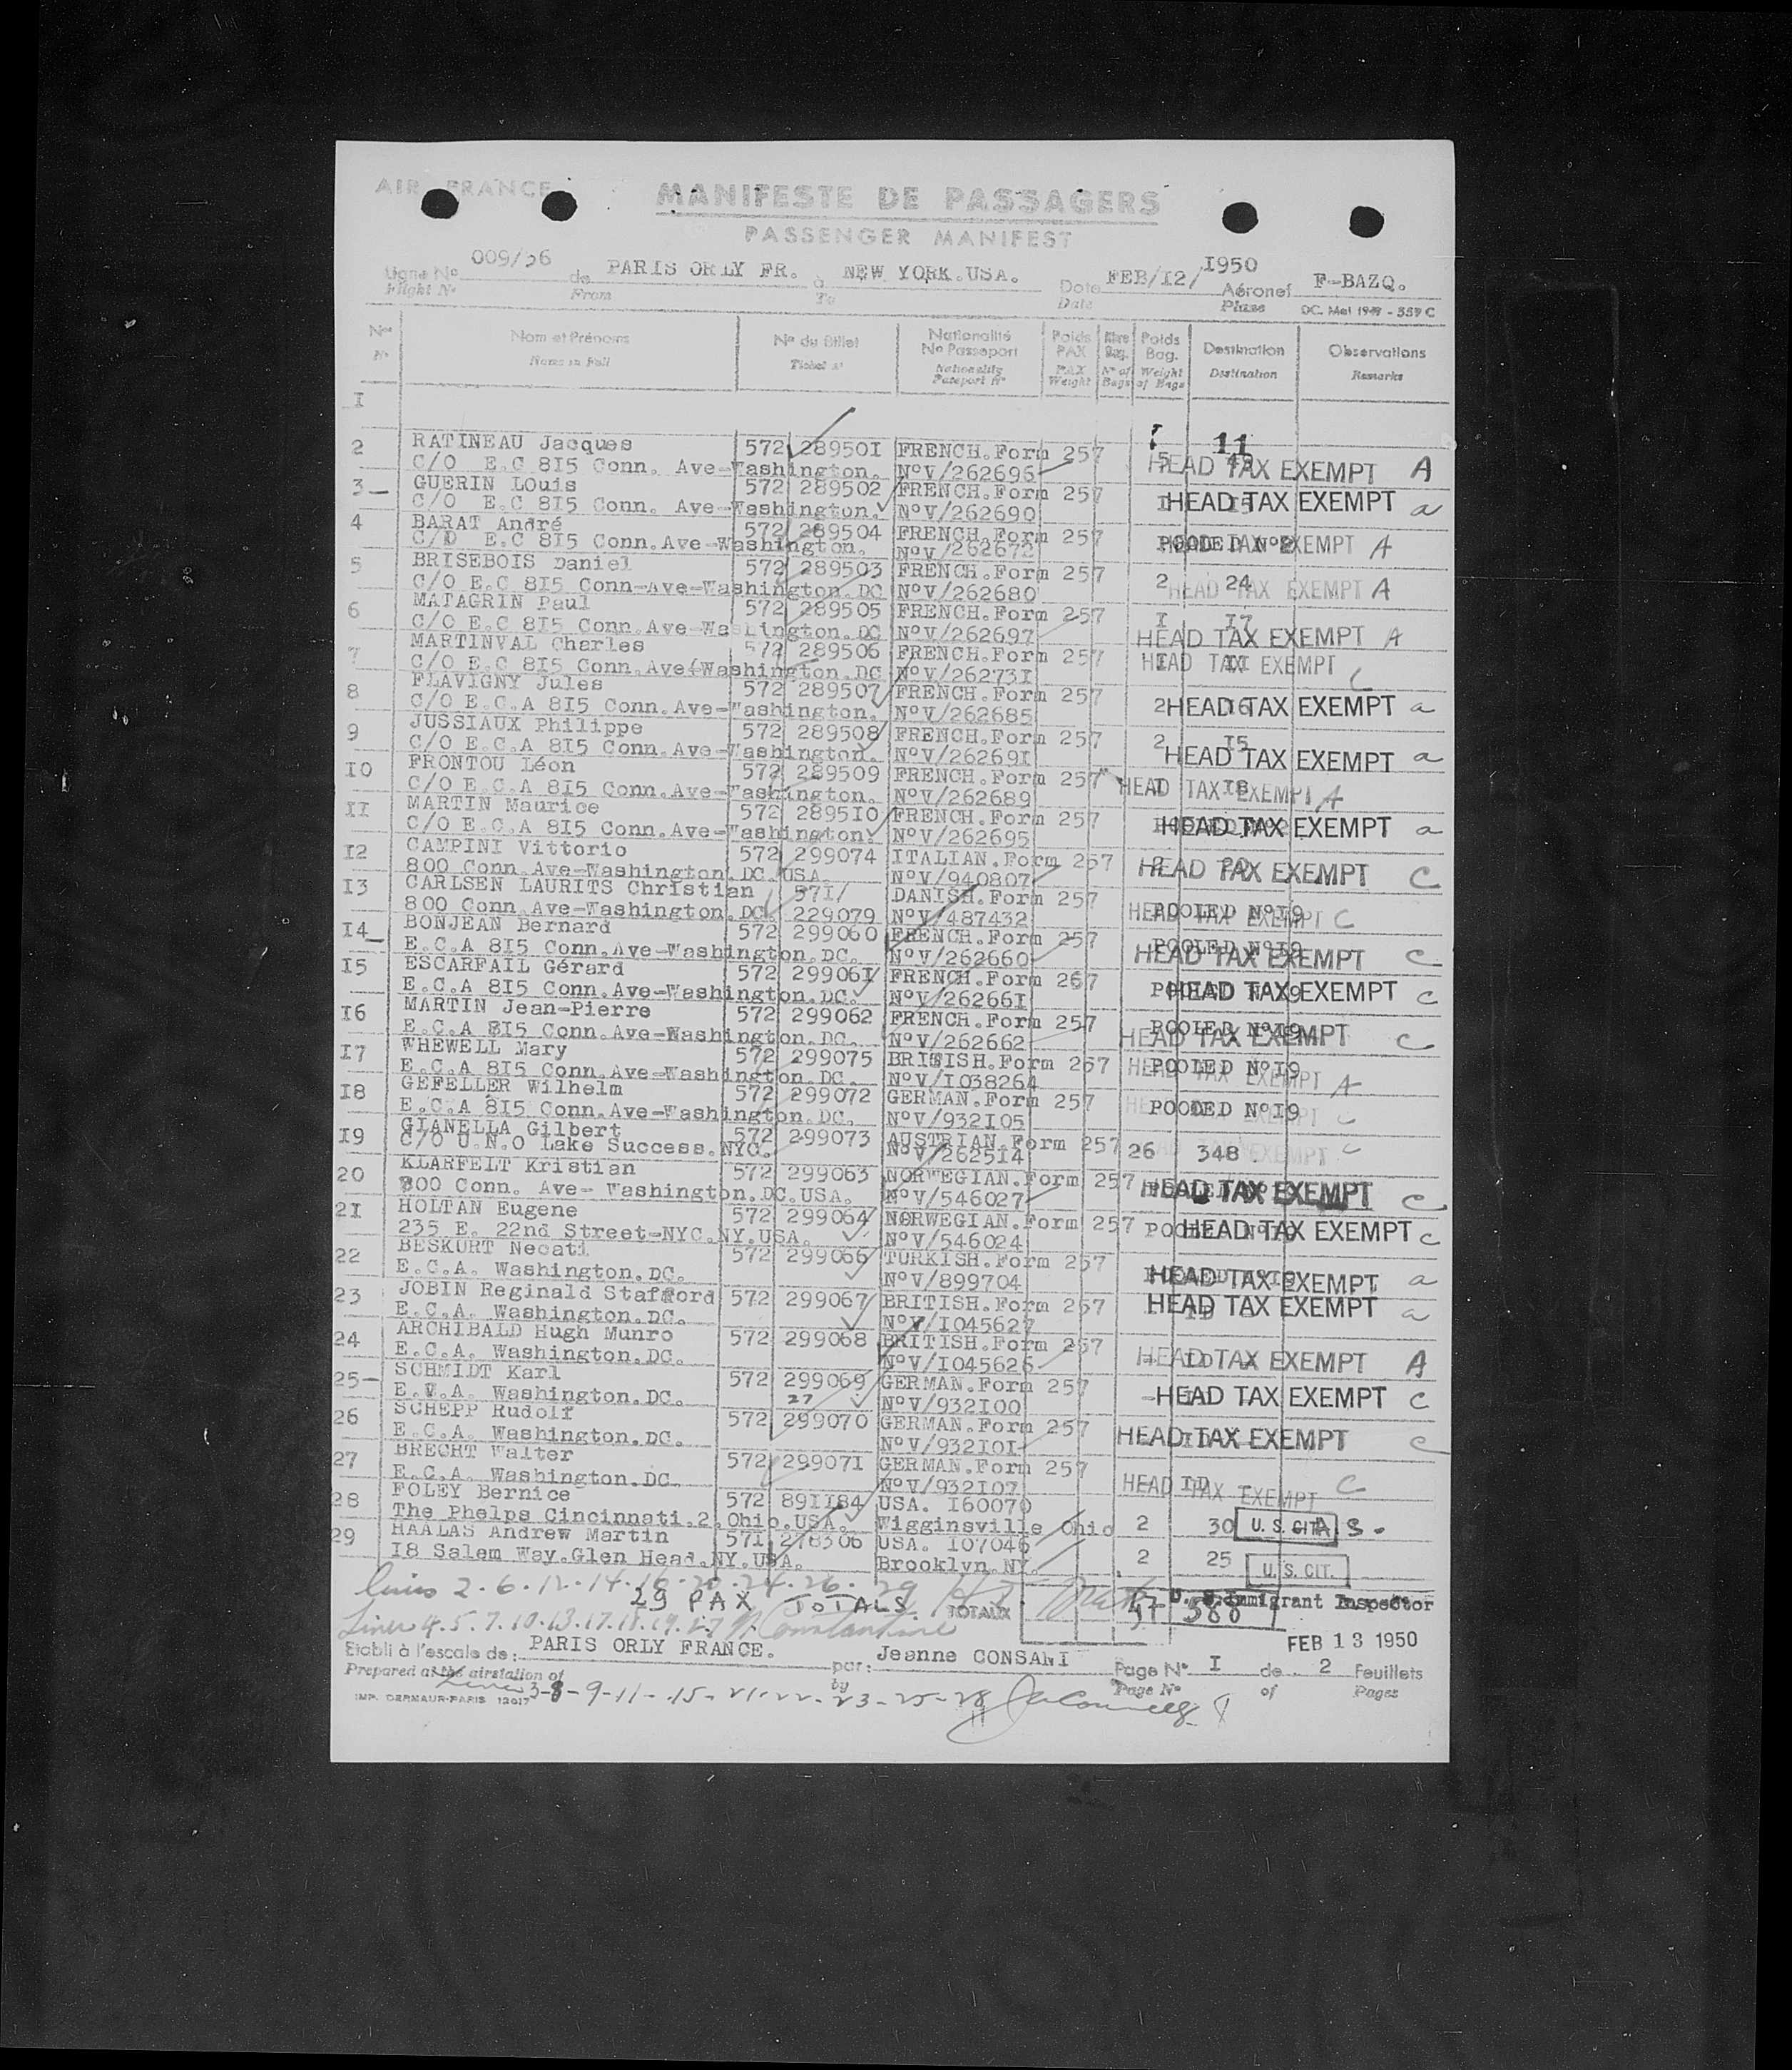 AIR FRANCE
MANIFESTE DE PASSAGERS
PASSENGER MANIFEST
Ligne No 009/36 de PARIS ORLY FR. à NEW YORK.USA. Date FEB/I2/ I950 Aéronef F-BAZQ.
Flight No From To Date Plane DC. Mai 1949 - 357 C
Nos Nom et Prénoms No du Billet Nationalité No Passeport Poids PAX Nbre Bag. Poids Bag. Destination Observations
No Name in Full Ticket No Nationality Passport No PAX Weight No of Bags Weight of Bags Destination Remarks
I
2 RATINEAU Jacques 572 28950I FRENCH.Form 257 11
C/O E.C 8I5 Conn. Ave-Washington. NoV/262696 HEAD TAX EXEMPT A
3 GUERIN LOuis 572 289502 FRENCH.Form 257
C/O E.C 8I5 Conn. Ave-Washington. NoV/262690 HEAD TAX EXEMPT a
4 BARAT André 572 289504 FRENCH.Form 257
C/O E.C 8I5 Conn.Ave-Washington. NoV/262672 POOLED No2 HEAD TAX EXEMPT A
5 BRISEBOIS Daniel 572 289503 FRENCH.Form 257
C/O E.C 8I5 Conn-Ave-Washington.DC NoV/262680 2 24 HEAD TAX EXEMPT A
6 MATAGRIN Paul 572 289505 FRENCH.Form 257 I I7
C/O E.C 8I5 Conn.Ave-Washington.DC NoV/262697 HEAD TAX EXEMPT A
7 MARTINVAL Charles 572 289506 FRENCH.Form 257
C/O E.C 8I5 Conn.Ave(Washington.DC NoV/26273I HEAD TAX EXEMPT C
8 FLAVIGNY Jules 572 289507 FRENCH.Form 257
C/O E.C.A 8I5 Conn.Ave-Washington. NoV/262685 2 I6 HEAD TAX EXEMPT a
9 JUSSIAUX Philippe 572 289508 FRENCH.Form 257 2 I5
C/O E.C.A 8I5 Conn.Ave-Washington. NoV/26269I HEAD TAX EXEMPT a
I0 FRONTOU Léon 572 289509 FRENCH.Form 257 I I8
C/O E.C.A 8I5 Conn.Ave-Washington. NoV/262689 HEAD TAX EXEMPT A
II MARTIN Maurice 572 2895I0 FRENCH.Form 257
C/O E.C.A 8I5 Conn.Ave-Washington. NoV/262695 HEAD TAX EXEMPT a
I2 CAMPINI Vittorio 572 299074 ITALIAN.Form 257
800 Conn.Ave-Washington.DC.USA. NoV/940807 HEAD TAX EXEMPT C
I3 CARLSEN LAURITS Christian 57I/ DANISH.Form 257
800 Conn.Ave-Washington.DC. 229079 NoV/487432 POOLED NoI9 HEAD TAX EXEMPT C
I4 BONJEAN Bernard 572 299060 FRENCH.Form 257 POOLED NoI9
E.C.A 8I5 Conn.Ave-Washington.DC. NoV/262660 HEAD TAX EXEMPT C
I5 ESCARFAIL Gérard 572 29906I FRENCH.Form 267
E.C.A 8I5 Conn.Ave-Washington.DC. NoV/26266I POOLED NoI9 HEAD TAX EXEMPT C
I6 MARTIN Jean-Pierre 572 299062 FRENCH.Form 257 POOLED NoI9
E.C.A 8I5 Conn.Ave-Washington.DC. NoV/262662 HEAD TAX EXEMPT C
I7 WHEWELL Mary 572 299075 BRITISH.Form 267 POOLED NoI9
E.C.A 8I5 Conn.Ave-Washington.DC. NoV/I038264 HEAD TAX EXEMPT A
I8 GEFELLER Wilhelm 572 299072 GERMAN.Form 257
E.C.A 8I5 Conn.Ave-Washington.DC. NoV/932I05 POOLED NoI9 C
I9 GIANELLA Gilbert 572 299073 AUSTRIAN.Form 257 26 348
C/O U.N.O Lake Success.NYC. NoV/2625I4 EXEMPT C
20 KLARFELT Kristian 572 299063 NORWEGIAN.Form 257
800 Conn. Ave- Washington.DC.USA. NoV/546027 HEAD TAX EXEMPT C
2I HOLTAN Eugene 572 299064 NORWEGIAN.Form 257
235 E. 22nd Street-NYC.NY.USA. NoV/546024 HEAD TAX EXEMPT C
22 BESKURT Necati 572 299066 TURKISH.Form 257
E.C.A. Washington.DC. NoV/899704 HEAD TAX EXEMPT a
23 JOBIN Reginald Stafford 572 299067 BRITISH.Form 267
E.C.A. Washington.DC. NoV/I045627 HEAD TAX EXEMPT a
24 ARCHIBALD Hugh Munro 572 299068 BRITISH.Form 257
E.C.A. Washington.DC. NoV/I045626 HEAD TAX EXEMPT A
25 SCHMIDT Karl 572 299069 GERMAN.Form 257
E.C.A. Washington.DC. 27 NoV/932I00 HEAD TAX EXEMPT C
26 SCHEPP Rudolf 572 299070 GERMAN.Form 257
E.C.A. Washington.DC. NoV/932I0I HEAD TAX EXEMPT C
27 BRECHT Walter 572 29907I GERMAN.Form 257
E.C.A. Washington.DC. NoV/932I07 HEAD TAX EXEMPT C
28 FOLEY Bernice 572 89II84 USA. I60070
The Phelps Cincinnati.2.Ohio.USA. Wigginsville Ohio 2 30 U.S. CIT.
29 HAALAS Andrew Martin 571 278306 USA. I07046
I8 Salem Way.Glen Head.NY.USA. Brooklyn.NY. 2 25 U.S. CIT.
Lines 2-6-12-14-16-20-24-26-29
29 PAX TOTALS. TOTAUX 47 588 U. S. Immigrant Inspector
Lines 4.5.7.10.13.17.18.19.27 Constantine
FEB 13 1950
Etabli à l'escale de: PARIS ORLY FRANCE. par: Jeanne CONSANI Page No I de 2 Feuillets
Prepared at the airstation of by Page No of Pages
Lines 3-8-9-11-15-21-22-23-25-28
IMP. DERMAUR-PARIS 12017